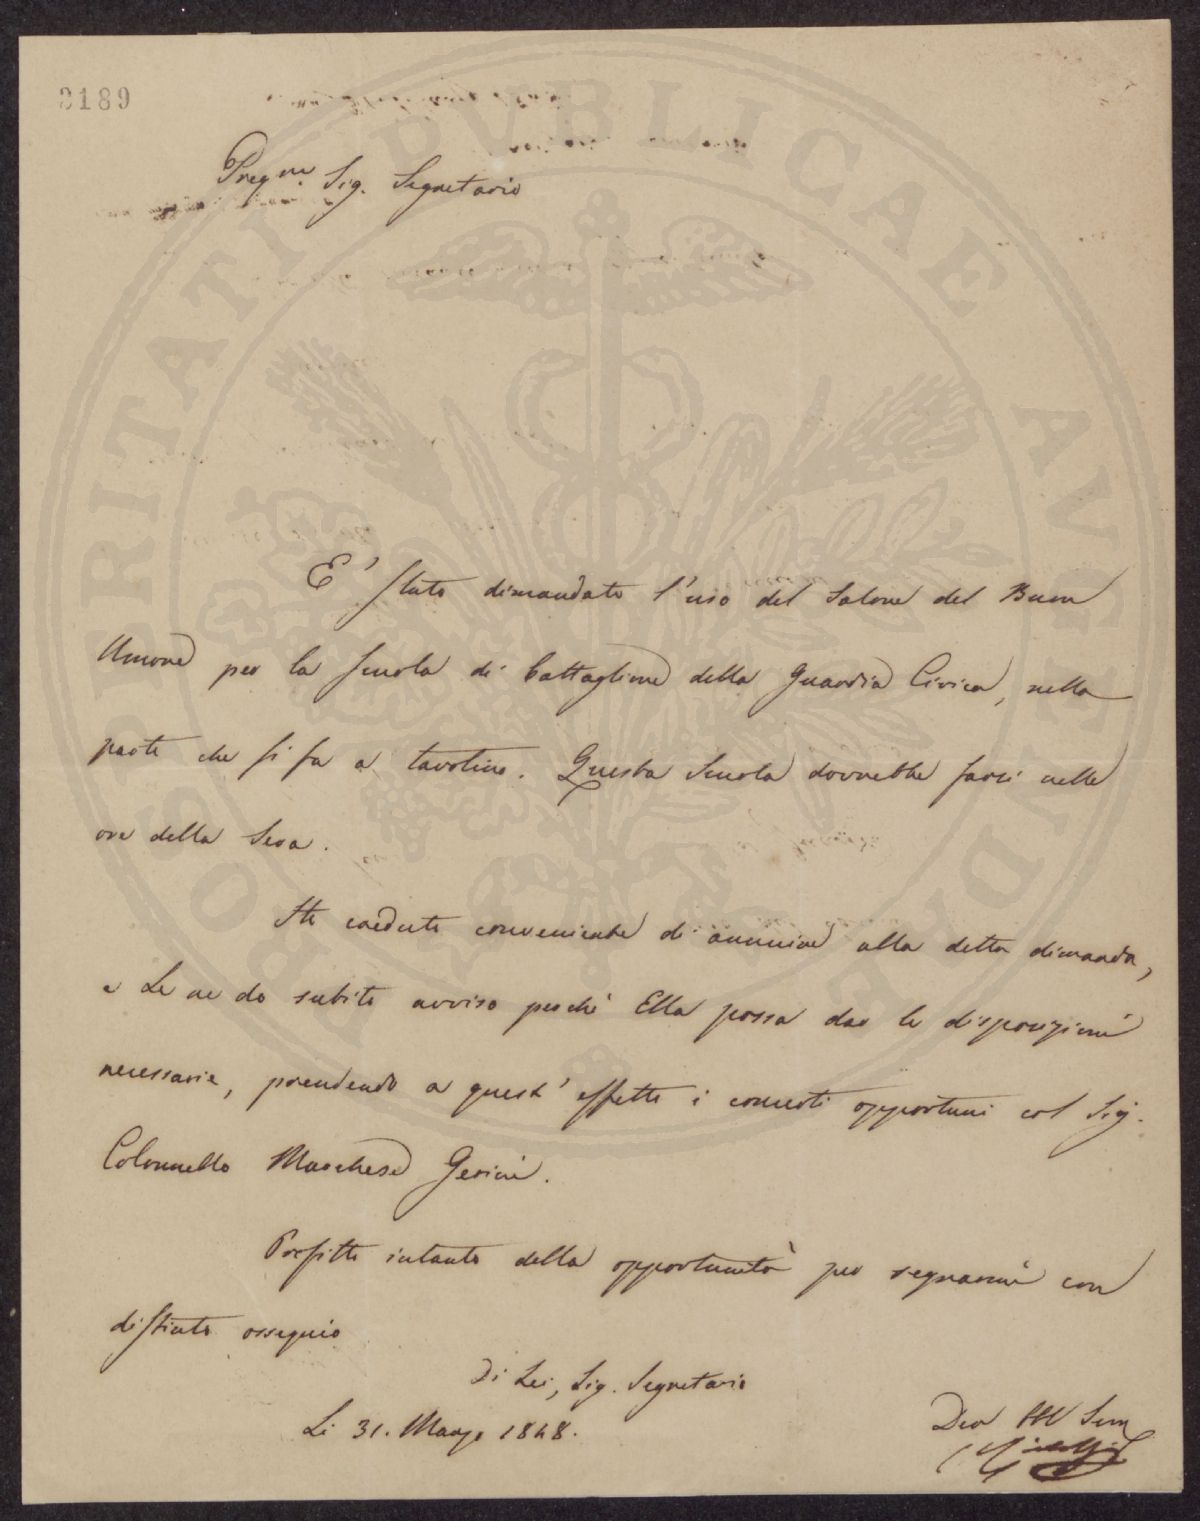 2189
Preg.mo Sig. Segretario
E' stato dimandato l'uso del Salone del Buon
Umore per la Scuola di battaglione della Guardia Civica, nella
parte che si fa a tavolino. Questa Scuola dovrebbe farsi nelle
ore della Sera.
Ho creduto conveniente di annuire alla detta dimanda,
e Le ne do subito avviso perchè Ella possa dar le disposizioni
necessarie, prendendo a quest' effetto i concerti opportuni col Sig.
Colonnello Marchese Gerini.
Profitto intanto della opportunità per segnarmi con
distinto ossequio
Di Lei, Sig. Segretario
Li 31. Marzo 1848.
PROSPERITATI PVBLICAE AVGENDAE